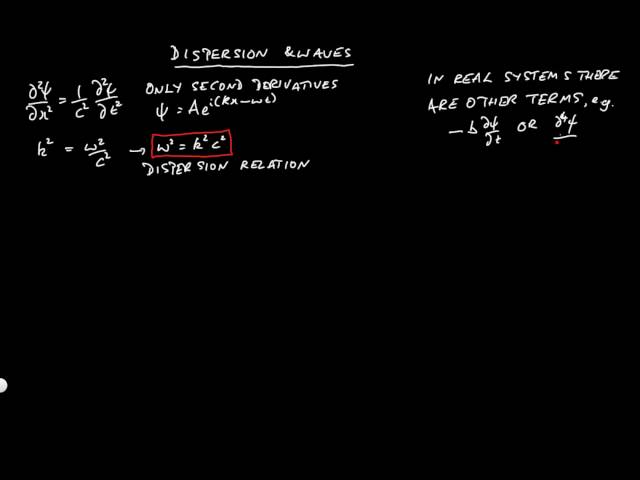 DISPERSION & WAVES
∂²ψ/∂x² = 1/c² ∂²ψ/∂t²
ONLY SECOND DERIVATIVES
ψ = Ae^i(kx-ωt)
k² = ω²/c² → ω² = k²c²
DISPERSION RELATION
IN REAL SYSTEMS THERE
ARE OTHER TERMS, e.g.
- b ∂ψ/∂t OR ∂⁴ψ